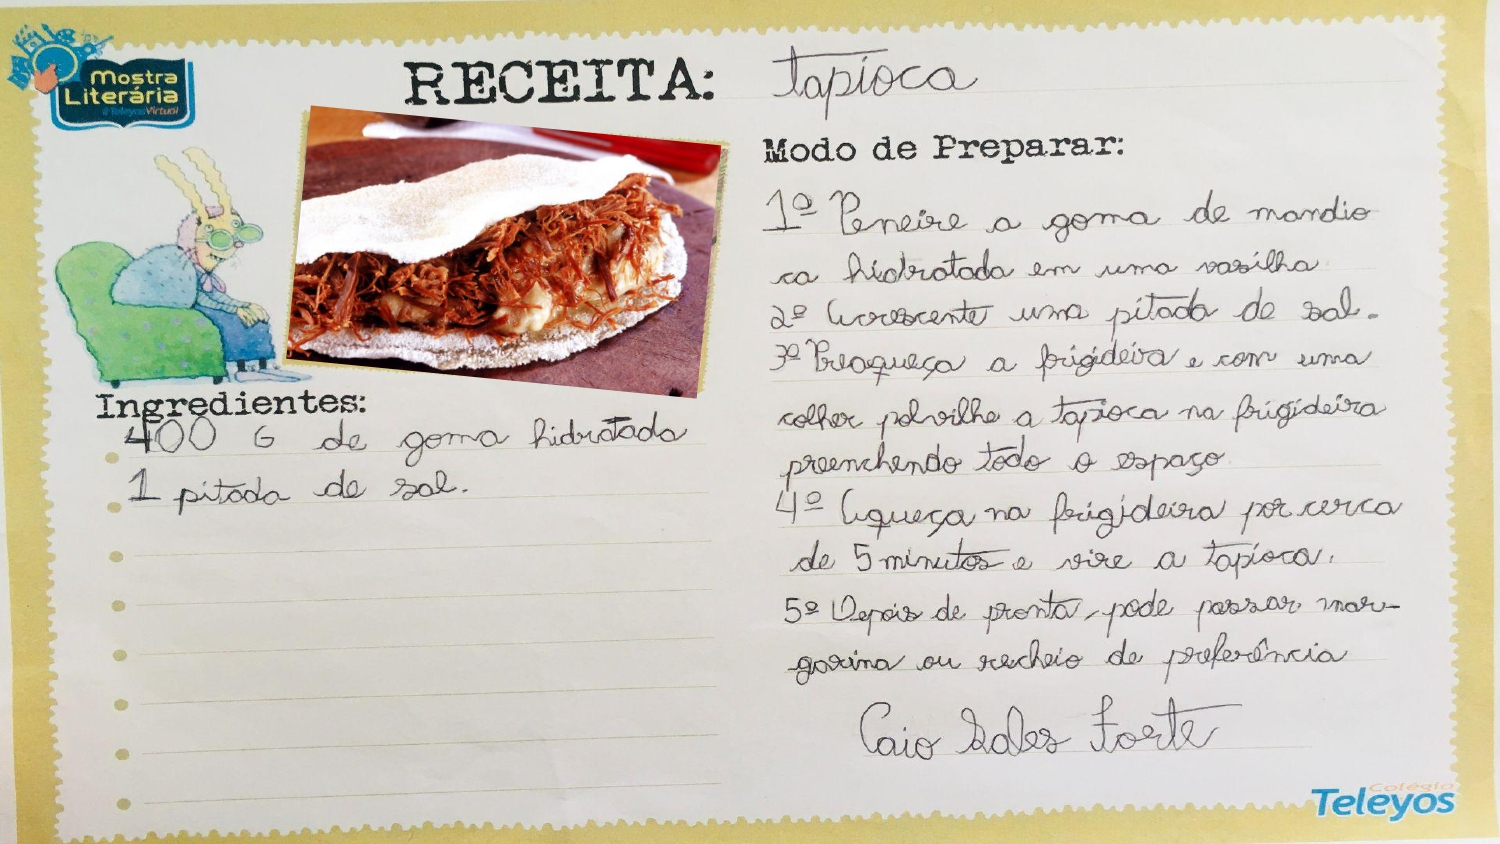 Mostra
Literária
#TeleyosVirtual
RECEITA: tapioca
Ingredientes:
400 G de goma hidratada
1 pitada de sal.
Modo de Preparar:
1º Peneire a goma de mandio
ca hidratada em uma vasilha
2º Acrescente uma pitada de sal.
3º Preaqueça a frigideira e com uma
colher polvilhe a tapioca na frigideira
preenchendo todo o espaço
4º Aqueça na frigideira por cerca
de 5 minutos e vire a tapioca.
5º Depois de pronta, pode passar mar-
garina ou recheio de preferência
Caio Sales Forte
Colégio
Teleyos